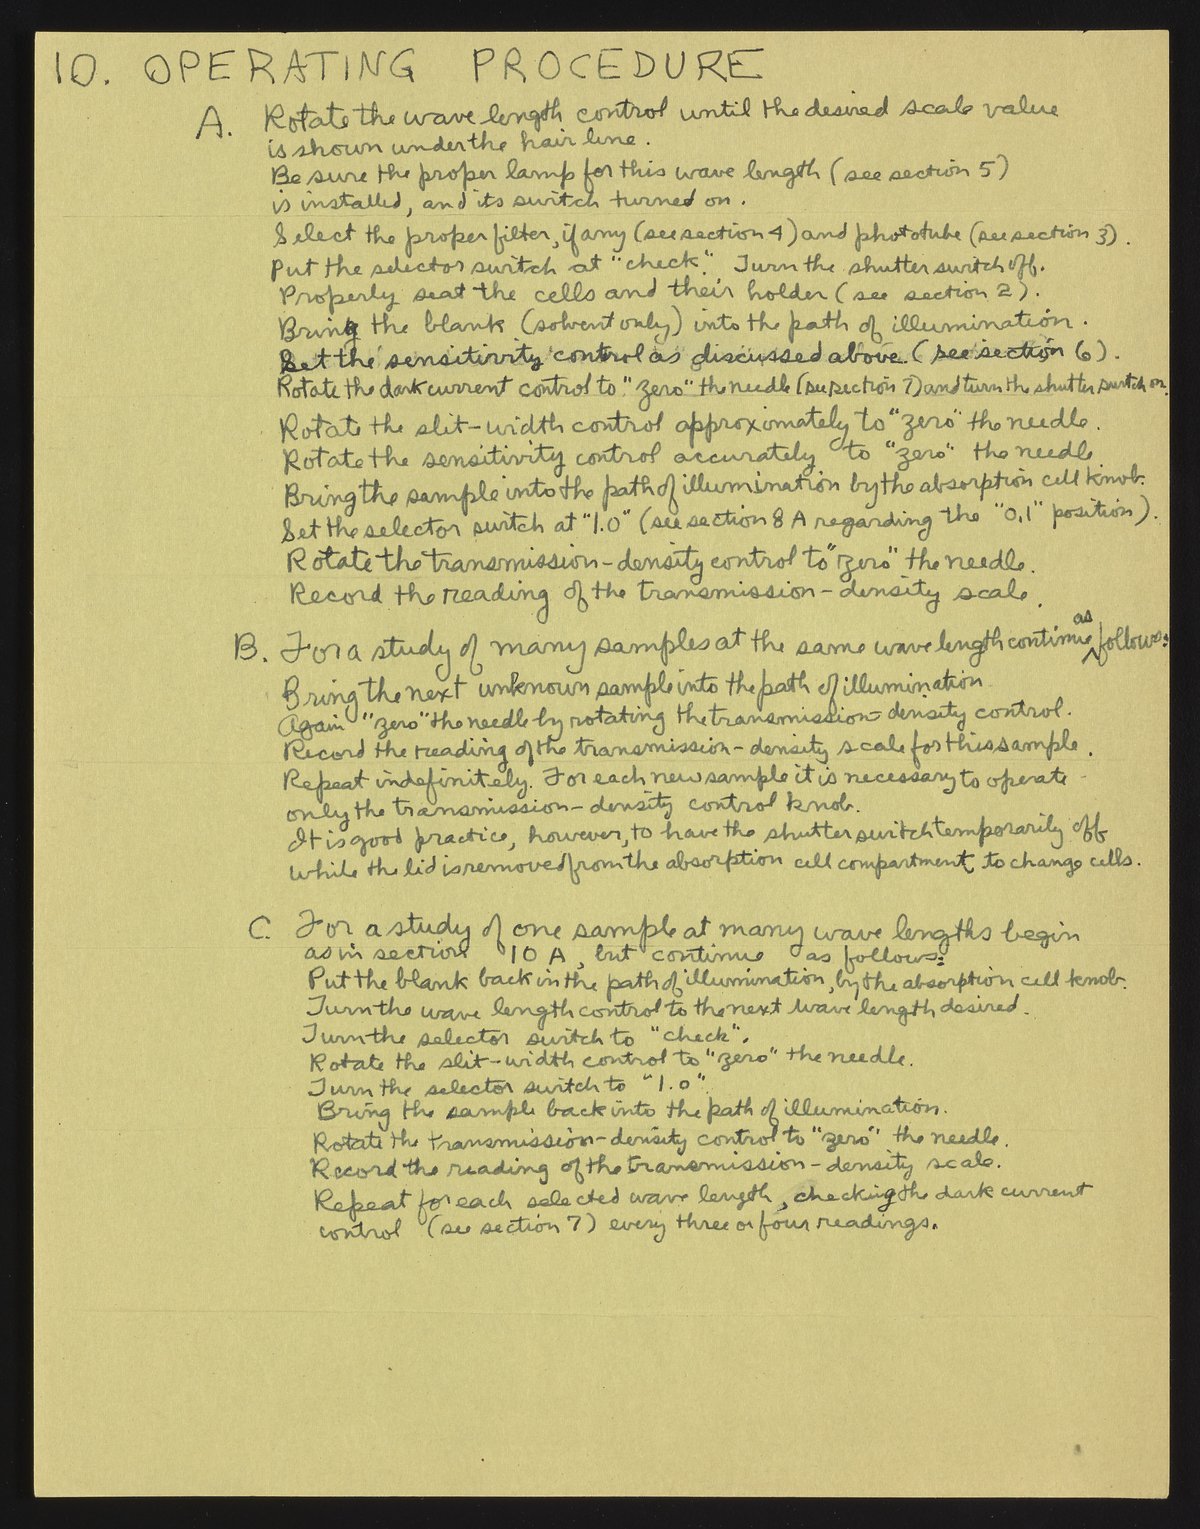 10. OPERATING PROCEDURE
A. Rotate the wave length control until the desired scale value
is shown under the hair line.
Be sure the proper lamp for this wave length (see section 5)
is installed, and its switch turned on.
Select the proper filter, if any (see section 4) and phototube (see section 3).
Put the selector switch at "check". Turn the shutter switch off.
Properly seat the cells and their holder (see section 2).
Bring the blank (solvent only) into the path of illumination.
Set the sensitivity control as discussed above (see section 6).
Rotate the dark current control to "zero" the needle (see section 7) and turn the shutter switch on.
Rotate the slit-width control approximately to "zero" the needle.
Rotate the sensitivity control accurately to "zero" the needle
Bring the sample into the path of illumination by the absorption cell knob.
Set the selector switch at "1.0" (see section 8 A regarding the "0.1" position).
Rotate the transmission-density control to "zero" the needle.
Record the reading of the transmission-density scale.
B. For a study of many samples at the same wave length continue as follows:
Bring the next unknown sample into the path of illumination
Again "zero" the needle by rotating the transmission-density control.
Record the reading of the transmission-density scale for this sample.
Repeat indefinitely. For each new sample it is necessary to operate
only the transmission-density control knob.
It is good practice, however, to have the shutter switch temporarily off
while the lid is removed from the absorption cell compartment, to change cells.
C. For a study of one sample at many wave lengths begin
as in section 10 A, but continue as follows:
Put the blank back in the path of illumination, by the absorption cell knob.
Turn the wave length control to the next wave length desired.
Turn the selector switch to "check".
Rotate the slit-width control to "zero" the needle.
Turn the selector switch to "1.0".
Bring the sample back into the path of illumination.
Rotate the transmission-density control to "zero" the needle.
Record the reading of the transmission-density scale.
Repeat for each selected wave length, checking the dark current
control (see section 7) every three or four readings.